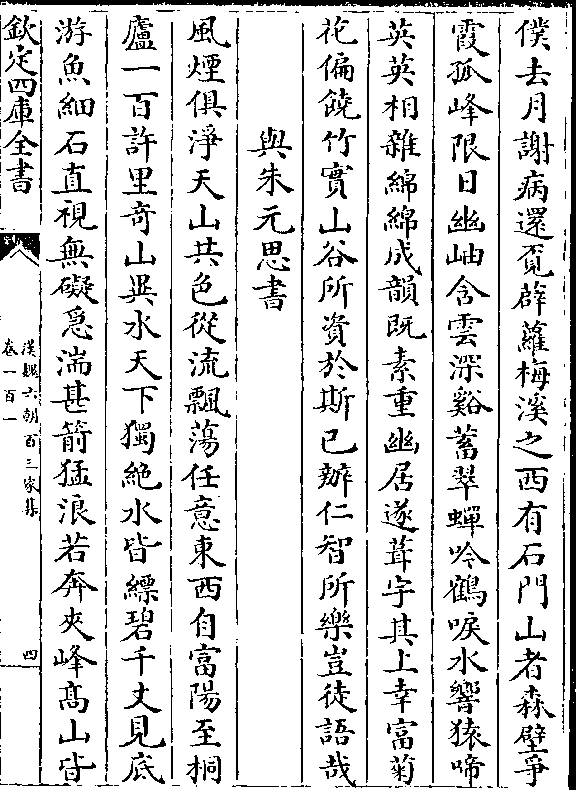 僕去月謝病還覓薜蘿梅溪之西有石門山者森壁爭
霞孤峰限日幽岫含雲深谿蓄翠蟬吟鶴唳水響猿啼
英英相雜綿綿成韻既素重幽居遂葺宇其上幸富菊
花偏饒竹實山谷所資於斯已辦仁智所樂豈徒語哉
與朱元思書
風煙俱淨天山共色從流飄蕩任意東西自富陽至桐
廬一百許里奇山異水天下獨絶水皆縹碧千丈見底
游魚細石直視無礙急湍甚箭猛浪若奔夾峰髙山皆
欽定四庫全書
漢魏六朝百三家集
卷一百一
四